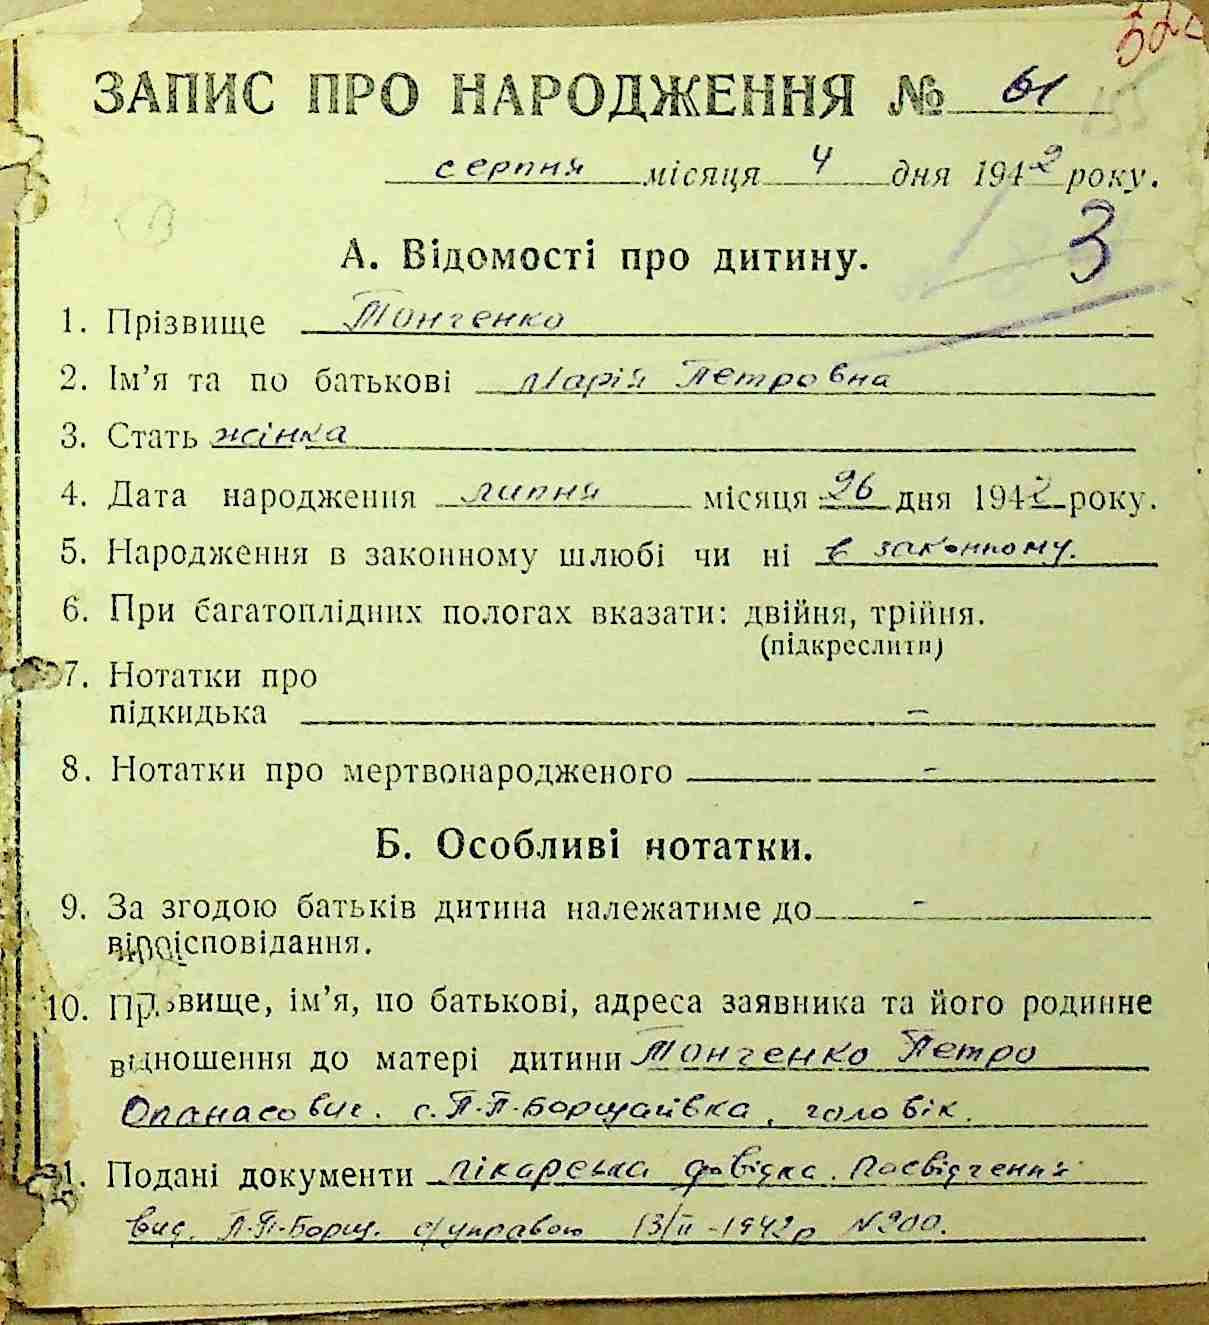 ЗАПИС ПРО НАРОДЖЕННЯ № 61
серпня місяця 4 дня 1942 року.
3
А. Відомості про дитину.
1. Прізвище Тонченко
2. Ім’я та по батькові Марія Петровна
3. Стать жінка
4. Дата народження липня місяця 26 дня 1942 року.
5. Народження в законному шлюбі чи ні в законному.
6. При багатоплідних пологах вказати: двійня, трійня.
(підкреслити)
7. Нотатки про
підкидька -
8. Нотатки про мертвонародженого -
Б. Особливі нотатки.
9. За згодою батьків дитина належатиме до -
віроісповідання.
10. Прізвище, ім’я, по батькові, адреса заявника та його родинне
відношення до матері дитини Тонченко Петро
Опанасович. с. П-П-Борщаівка, головік.
11. Подані документи лікарська довідка. Посвідчення
вид. П-П-Борщ. с/управою 13/II-1942 р №200.